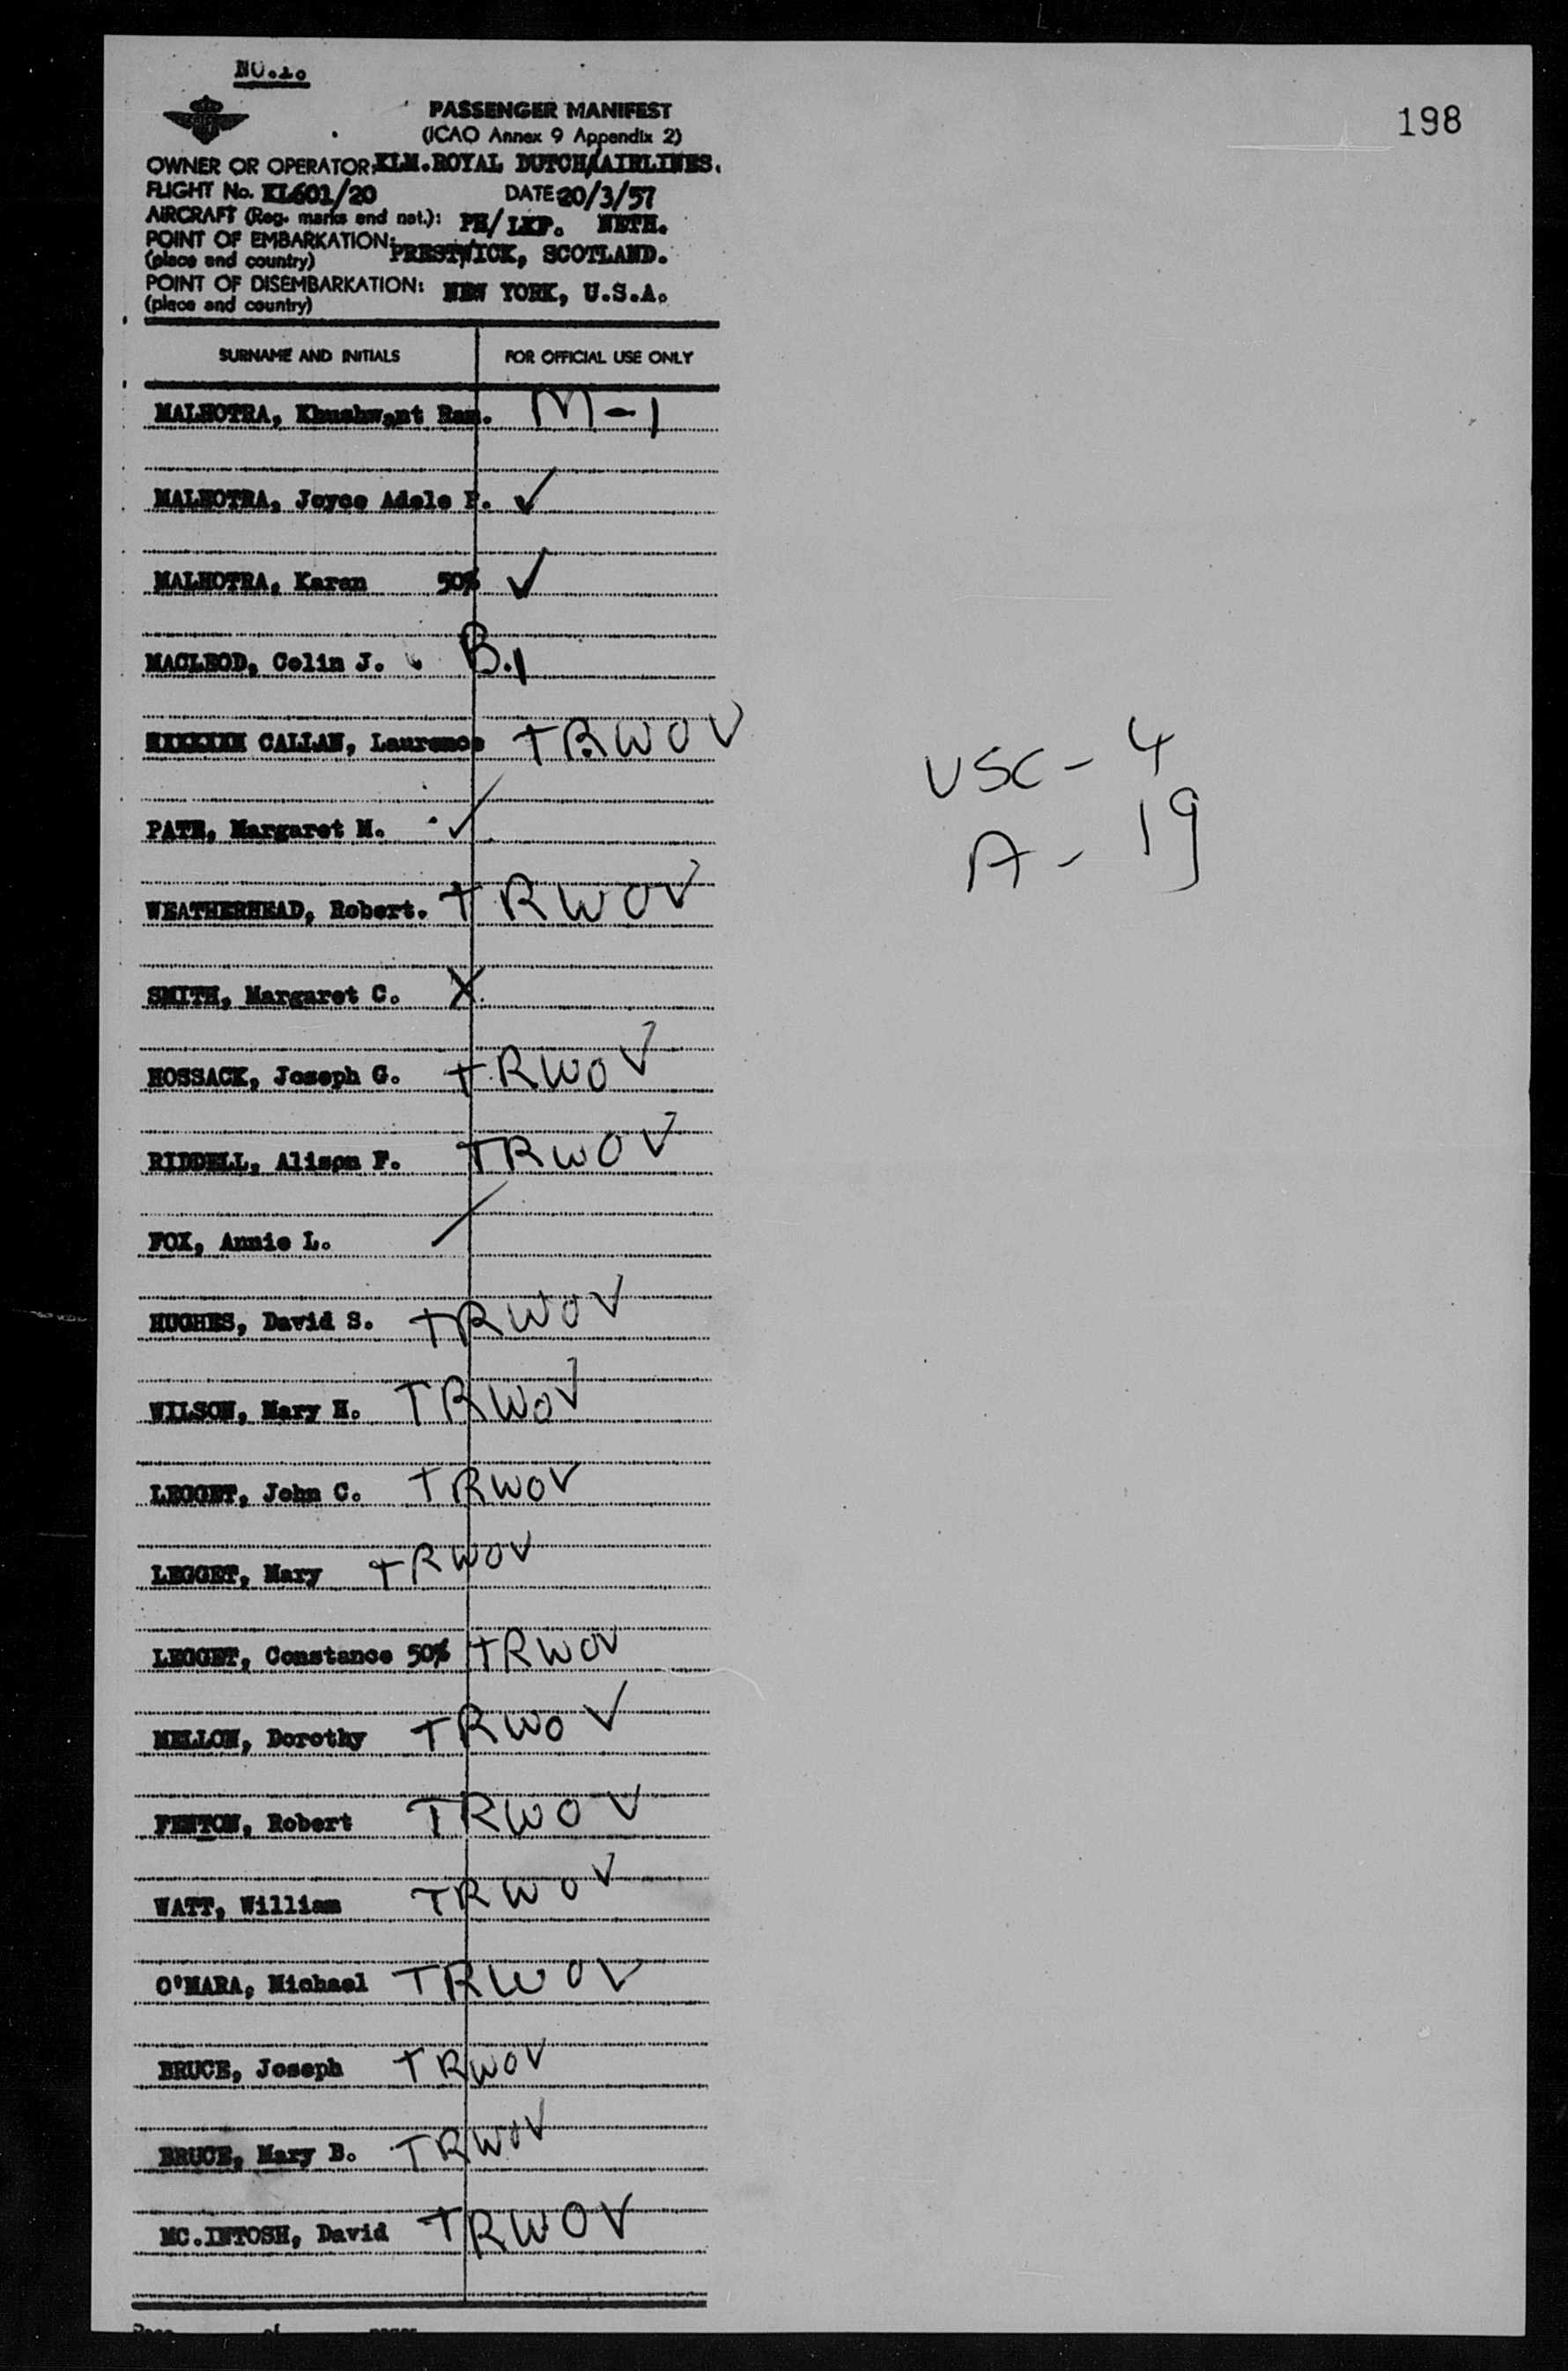 NO.1.
198
PASSENGER MANIFEST
(ICAO Annex 9 Appendix 2)
OWNER OR OPERATOR: KLM.ROYAL DUTCH/AIRLINES.
FLIGHT No. KL601/20 DATE 20/3/57
AIRCRAFT (Reg. marks and nat.): PH/LKP. NETH.
POINT OF EMBARKATION: PRESTWICK, SCOTLAND.
(place and country)
POINT OF DISEMBARKATION: NEW YORK, U.S.A.
(place and country)
SURNAME AND INITIALS FOR OFFICIAL USE ONLY
MALHOTRA, Khushwant Ram. M-1
MALHOTRA, Joyce Adele P. ✓
MALHOTRA, Karan 50% ✓
MACLEOD, Colin J. B.1
CALLAN, Laurence TRWOV
USC - 4
PATE, Margaret M. ✓
A - 19
WEATHERHEAD, Robert. TRWOV
SMITH, Margaret C. X
HOSSACK, Joseph G. TRWOV
RIDDELL, Alison F. TRWOV
FOX, Annie L. /
HUGHES, David S. TRWOV
WILSON, Mary H. TRWOV
LEGGET, John C. TRWOV
LEGGET, Mary TRWOV
LEGGET, Constance 50% TRWOV
MELLON, Dorothy TRWOV
FENTON, Robert TRWOV
WATT, William TRWOV
O'MARA, Michael TRWOV
BRUCE, Joseph TRWOV
BRUCE, Mary B. TRWOV
MC.INTOSH, David TRWOV